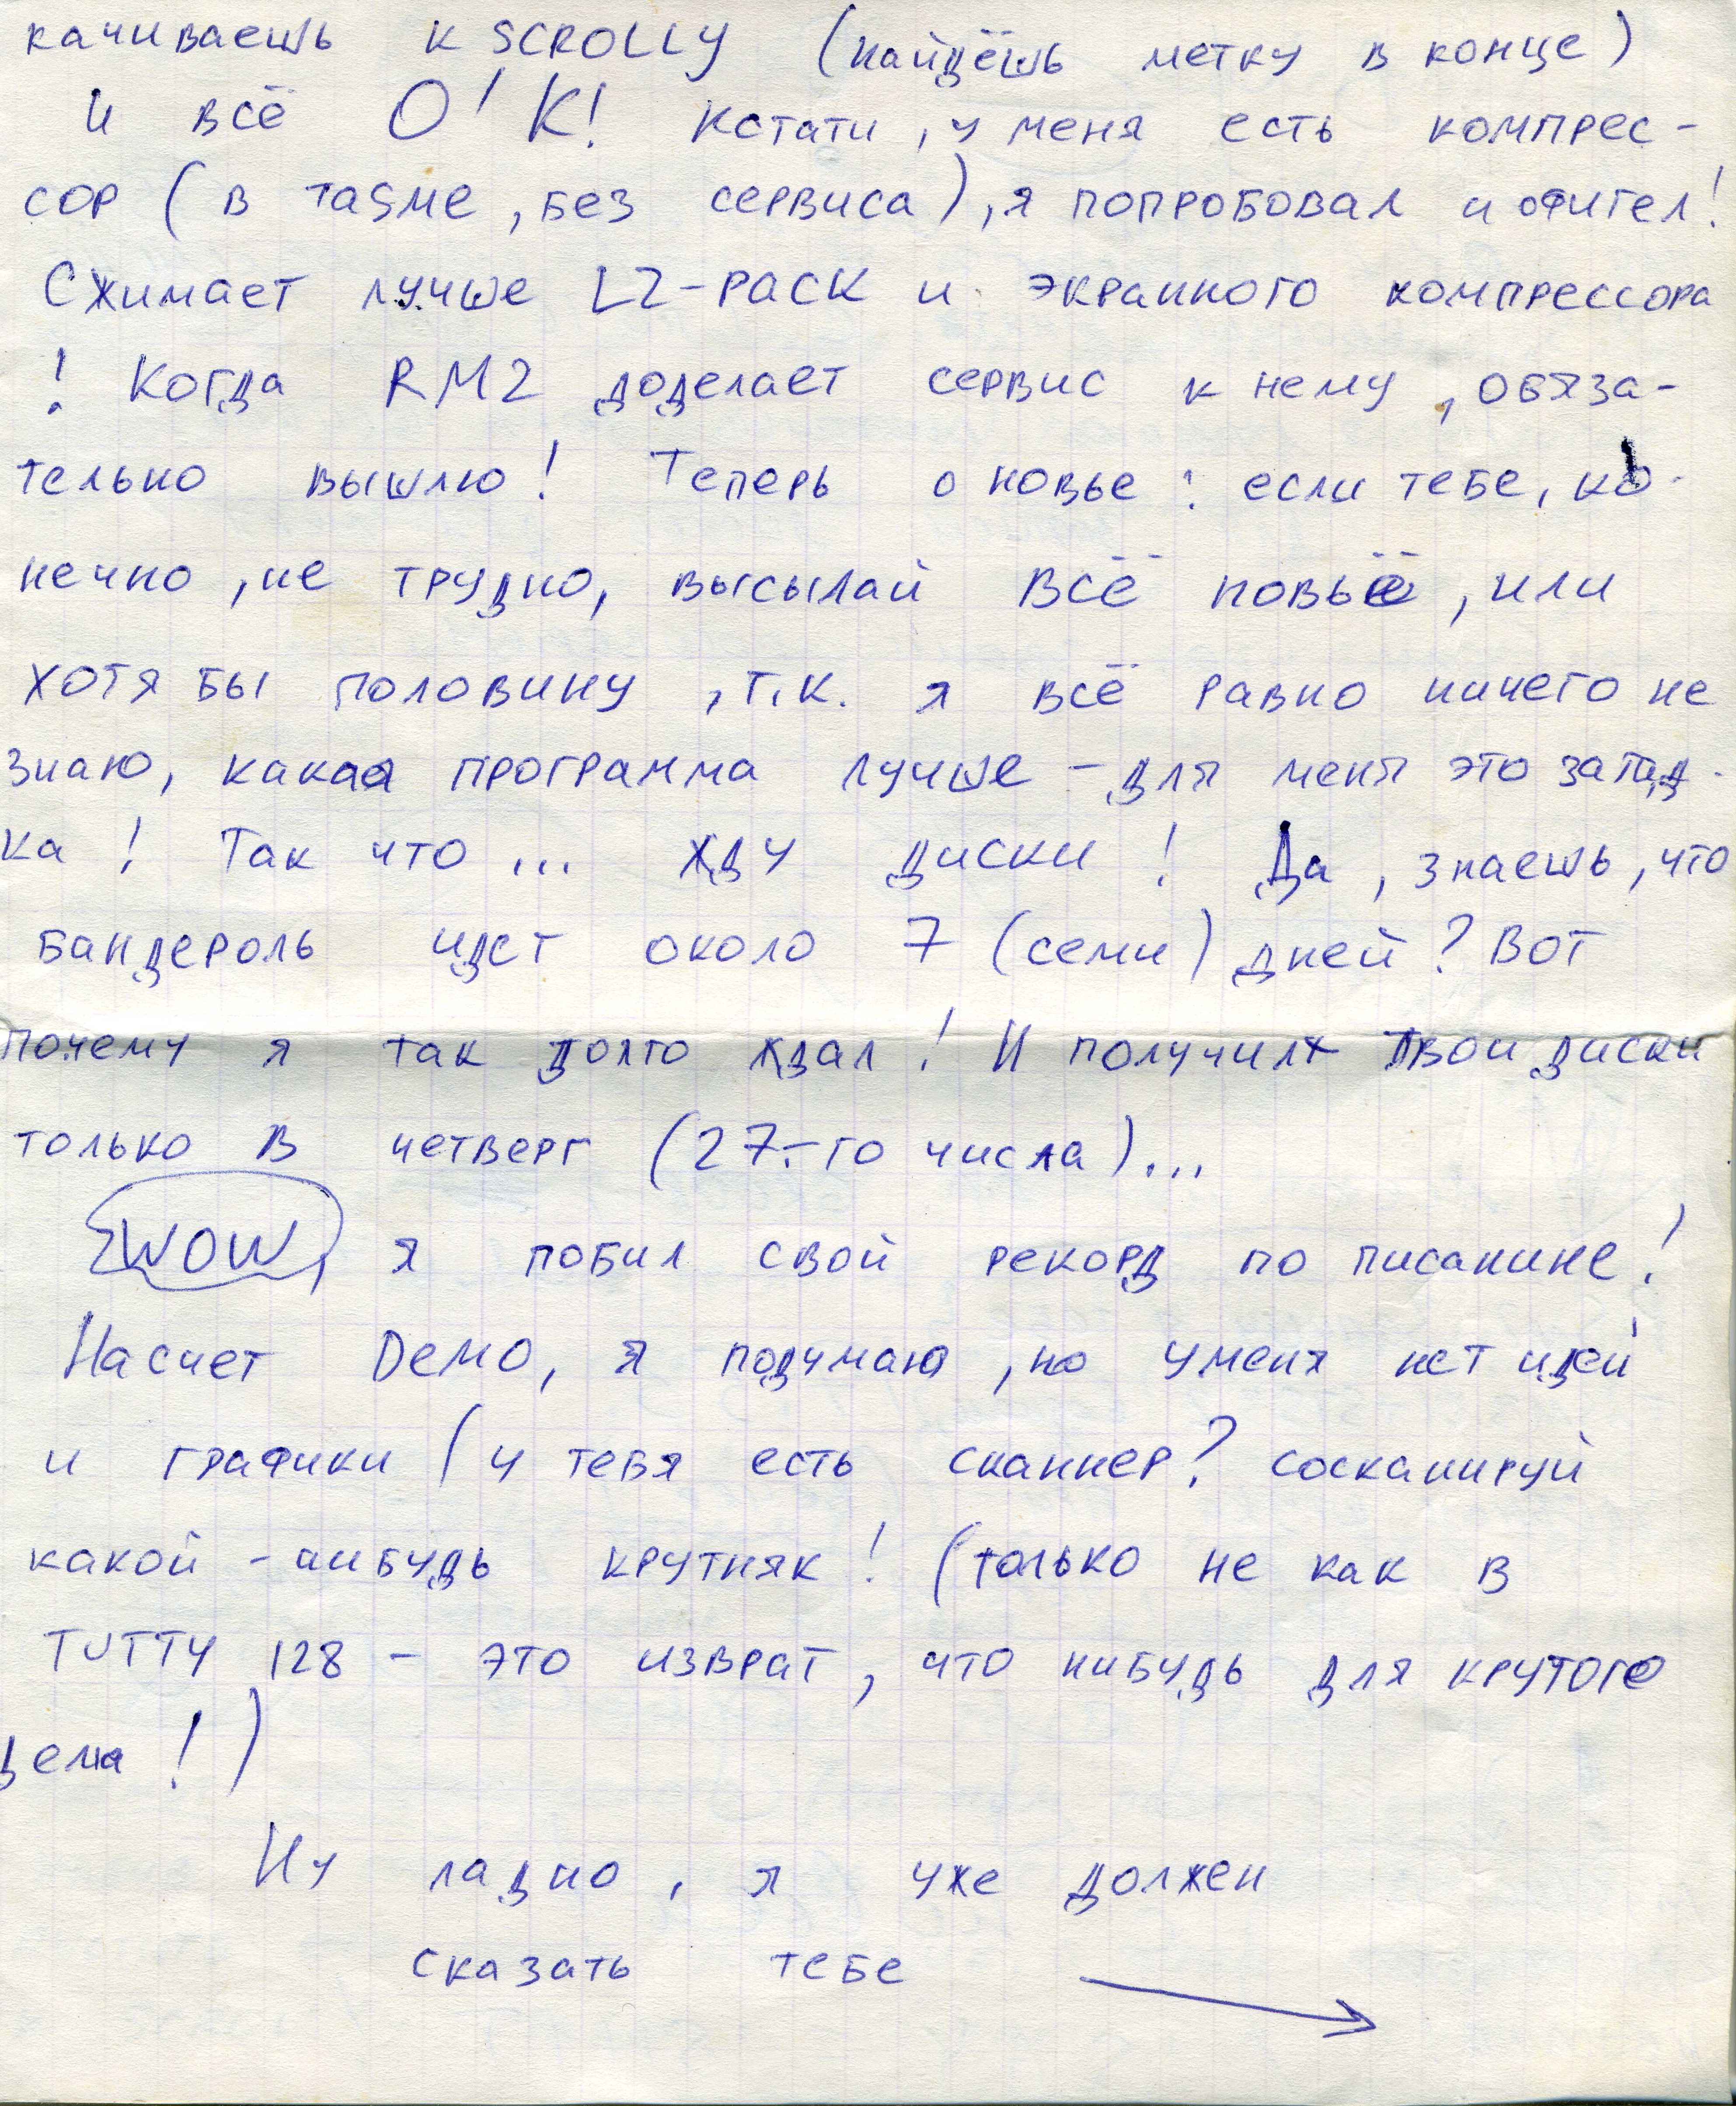 качиваешь к SCROLLY (найдёшь метку в конце)
И всё O'K! Кстати, у меня есть компрес-
сор (в TASMе, без сервиса), я попробовал и офигел!
Сжимает лучше LZ-PACK и экранного компрессора
! Когда RM2 доделает сервис к нему, обяза-
тельно вышлю! Теперь о новье: если тебе, ко-
нечно, не трудно, высылай всё новьё, или
хотя бы половину, т.к. я всё равно ничего не
знаю, какая программа лучше - для меня это загад-
ка! Так что ... жду диски! Да, знаешь, что
бандероль идет около 7 (семи) дней? Вот
почему я так долго ждал! И получил твои диски
только в четверг (27-го числа)...
WOW, я побил свой рекорд по писанине!
Насчет Demo, я подумаю, но у меня нет идей
и графики (у тебя есть сканнер? сосканируй
какой-нибудь крутняк! (только не как в
TUTTY 128 - это изврат, что нибудь для крутого
дема!)
Ну ладно, я уже должен
сказать тебе →